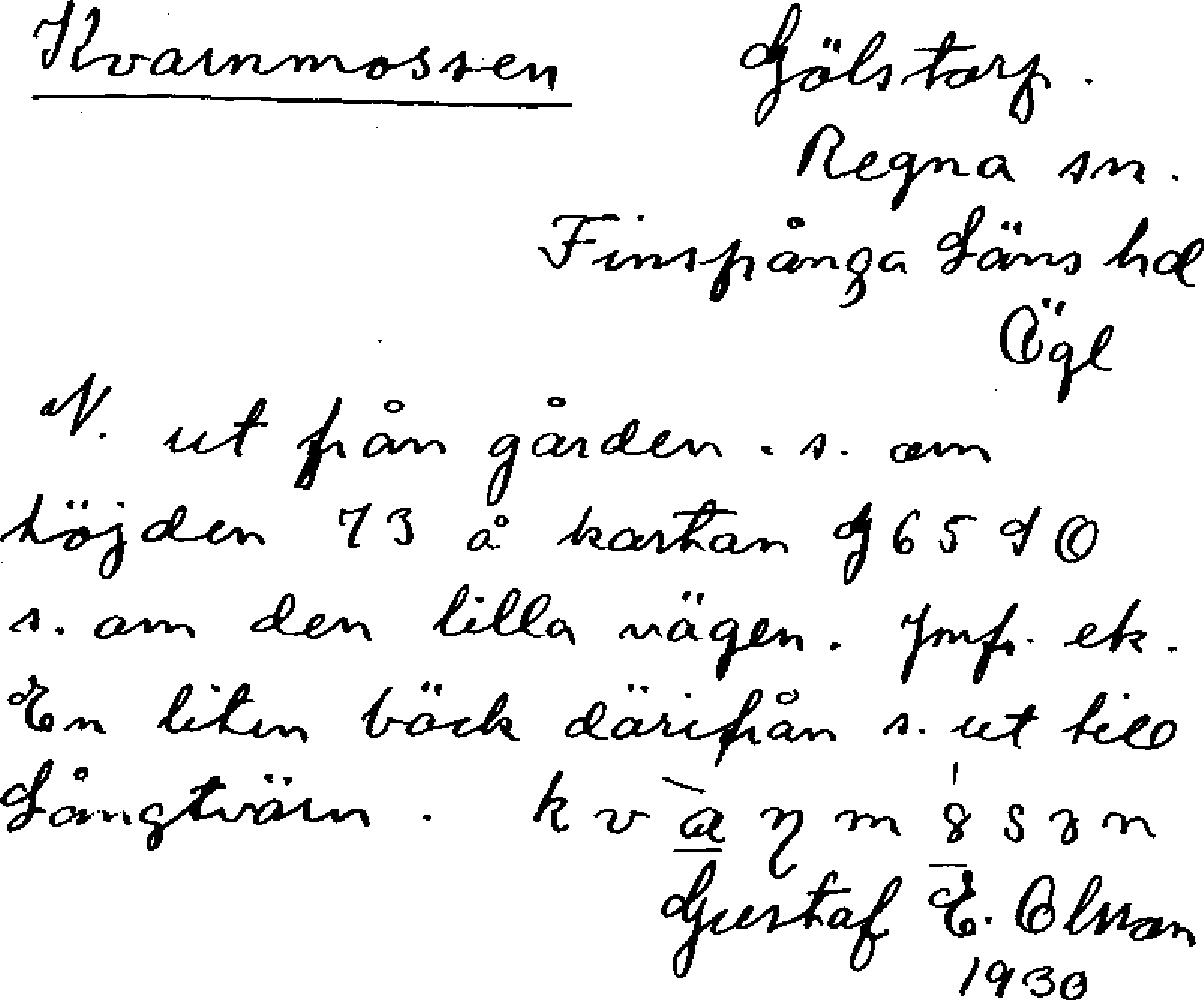 Kvarnmossen
Gölstorp.
Regna sn.
Finspånga Läns hd
Ögl
N. ut från gården. s. om
höjden 73 å kartan G65SO
s. om den lilla vägen. Jmfr. ek.
En liten bäck därifrån s. ut till
Långtvärn.
Gustaf E. Olsson
1930